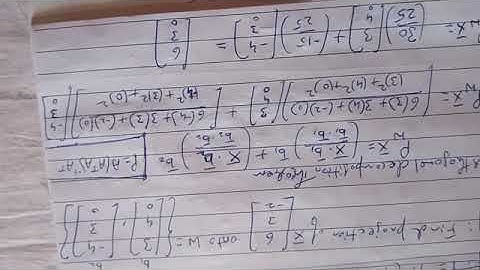 b₁ b₂
: Find projection of x̄ [6 3 -2] onto W = {[3 4 0], [-4 3 0]}
thogonal decomposition Theorem
P_W x̄ = (x̄·b̄₁ / b̄₁·b̄₁) b̄₁ + (x̄·b̄₂ / b̄₂·b̄₂) b̄₂ P=A(AᵀA)⁻¹Aᵀ
P_W x̄ = [6(3)+3(4)+(-2)(0) / (3)²+(4)²+(0)²] [3 4 0] + [6(-4)+3(3)+(-2)(0) / (-4)²+(3)²+(0)²] [-4 3 0]
P_W x̄ = (30/25) [3 4 0] + (-15/25) [-4 3 0] = [6 3 0]